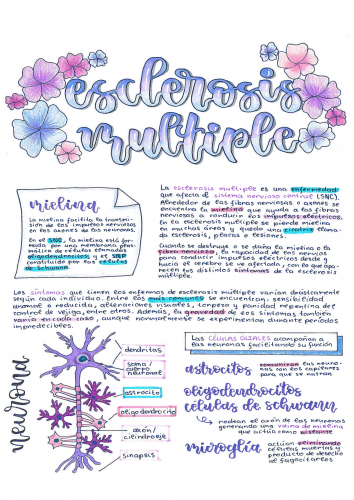 esclerosis
múltiple
mielina
La mielina facilita la transmi-
sión de los impulsos nerviosos
en los axones de las neuronas.
En el SNC, la mielina está for-
mada por una membrana plas-
mática de células llamadas
oligodendrocitos y el SNP
constituido por las células
de schwann.
La esclerosis múltiple es una enfermedad
que afecta el sistema nervioso central (SNC).
Alrededor de las fibras nerviosas o axones se
encuentra la mielina que ayuda a las fibras
nerviosas a conducir los impulsos eléctricos.
En la esclerosis múltiple se pierde mielina
en muchas áreas y queda una cicatriz llama-
da esclerosis, placas o lesiones.
Cuando se destruye o se daña la mielina o la
fibra nerviosa, la capacidad de los nervios
para conducir impulsos eléctricos desde y
hacia el cerebro se ve afectada, con lo que apa-
recen los distintos síntomas de la esclerosis
múltiple.
Los síntomas que tienen los enfermos de esclerosis múltiple varían drásticamente
según cada individuo. Entre los más comunes se encuentran: sensibilidad
anormal o reducida, alteraciones visuales, torpeza y pérdida repentina del
control de vejiga, entre otros. Además, la gravedad de los síntomas también
varía en cada caso, aunque normalmente se experimentan durante periodos
impredecibles.
neurona
dendritas
soma/
cuerpo
neuronal
astrocito
oligodendrocito
axón/
cilindroeje
sinapsis
Las CÉLULAS GLIALES acompañan a
las neuronas facilitando su función
astrocitos
comunican las neuro-
nas con los capilares
para que se nutran
oligodendrocitos
células de schwann
rodean el axón de las neuronas
generando una vaina de mielina
que actúa como aislante
microglía
actúan eliminando
células muertas y
producto de desecho
al fagocitarlas